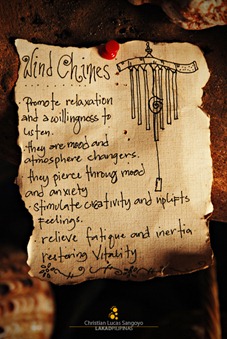 Wind Chimes
Promote relaxation
and a willingness to
listen.
. they are mood and
atmosphere changers.
they pierce throug mood
and anxiety
. stimulate creativity and uplifts
Feelings.
. relieve fatigue and inertia
restoring Vitality
Christian Lucas Sangoyo
LAKADPILIPINAS